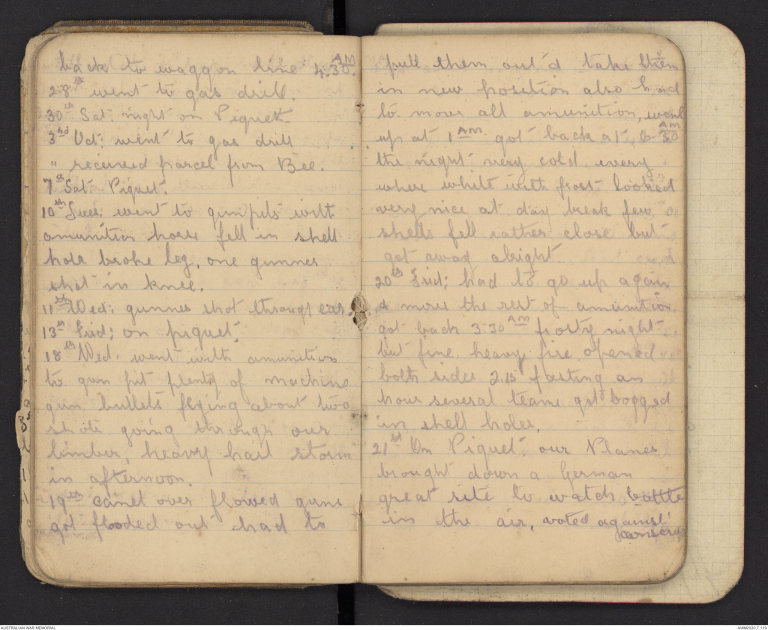 back to waggon line 4.30 AM
28th went to gas drill.
30th Sat: night on Piquet
3rd Oct: went to gas drill
" received parcel from Bee.
7th Sat: Piquet.
10th Tues: went to gunpits with
amunition horse fell in shell
hole broke leg, one gunner
shot in knee.
11th Wed: gunner shot through ear
13th Frid; on piquet.
18th Wed. went with amunition
to gun pit plenty of machine
gun bullets flying about two
shots going through our
limber, heavy hail storm
in afternoon.
19th canel over flowed guns
got flooded out had to
pull them out & take them
in new position also had
to move all amunition, went
up at 1 AM got back at 6.30 AM
the night very cold every
where white with frost looked
very nice at day break few
shells fell eather close but
got away alright
20th Frid; had to go up again
& move the rest of amunition
got back 3.30 AM frosty night
but fine heavy fire opened
both sides 2.15 lasting an
hour several teams got bogged
in shell holes,
21st On Piquet, our Planes
brought down a German
great site to watch battle
in the air, voted against
AUSTRALIAN WAR MEMORIAL